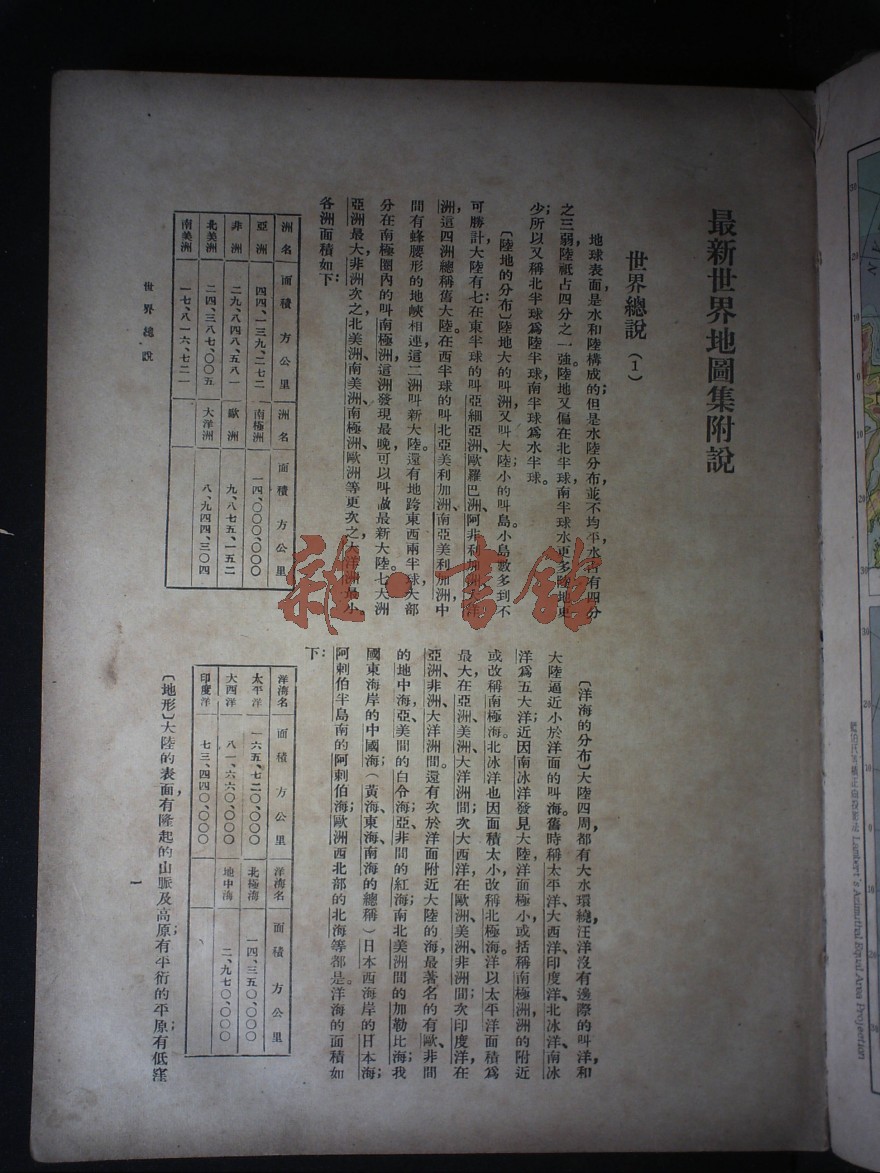 最新世界地圖集附說
世界總說(1)
地球表面,是水和陸構成的;但是水陸分布,並不均平,水占有四分
之三弱,陸祇占四分之一強。陸地又偏在北半球,南半球水更多,陸地更
少,所以又稱北半球爲陸半球,南半球爲水半球。
〔陸地的分布〕陸地大的叫洲,又叫大陸;小的叫島。小島數多到不
可勝計,大陸有七:在東半球的叫亞細亞洲、歐羅巴洲、阿非利加洲、大洋
洲,這四洲總稱舊大陸。在西半球的叫北亞美利加洲、南亞美利加洲,中
間有蜂腰形的地峽相連,這二洲叫新大陸。還有地跨東西兩半球,大部
分在南極圈內的叫南極洲,這洲發現最晚,可以叫做最新大陸。七大洲
亞洲最大,非洲次之,北美洲、南美洲、南極洲、歐洲等更次之,大洋洲最小。
各洲面積如下:
洲名 面積方公里 洲名 面積方公里
亞洲 四四、一三九、二七二 南極洲 一四、〇〇〇、〇〇〇
非洲 二九、八四八、五八一 歐洲 九、八七五、一五二
北美洲 二四、三八七、〇〇五 大洋洲 八、九四四、三〇四
南美洲 一七、八一六、七二一
〔洋海的分布〕大陸四周,都有大水環繞,汪洋沒有邊際的叫洋,和
大陸逼近小於洋面的叫海。舊時稱太平洋、大西洋、印度洋、北冰洋、南冰
洋爲五大洋;近因南冰洋發見大陸,洋面極小,或括稱南極洲,洲的附近
或改稱南極海。北冰洋也因面積太小,改稱北極海。洋以太平洋面積爲
最大,在亞洲、美洲、大洋洲間;次大西洋,在歐洲、美洲、非洲間;次印度洋,在
亞洲、非洲、大洋洲間。還有次於洋面附近大陸的海,最著名的有歐、非間
的地中海,亞、美間的白令海;亞、非間的紅海;南北美洲間的加勒比海;我
國東海岸的中國海;(黃海、東海、南海的總稱)日本西海岸的日本海;
阿剌伯半島南的阿剌伯海;歐洲西北部的北海等都是。洋海的面積如
下:
洋海名 面積方公里 洋海名 面積方公里
太平洋 一六五、七二〇、〇〇〇 北極海 一四、三五〇、〇〇〇
大西洋 八一、六六〇、〇〇〇 地中海 二、九七〇、〇〇〇
印度洋 七三、四四〇、〇〇〇
〔地形〕大陸的表面,有隆起的山脈及高原;有平衍的平原;有低窪
世界總說
一
雜·書館
Lambert's Azimuthal Equal Area Projection